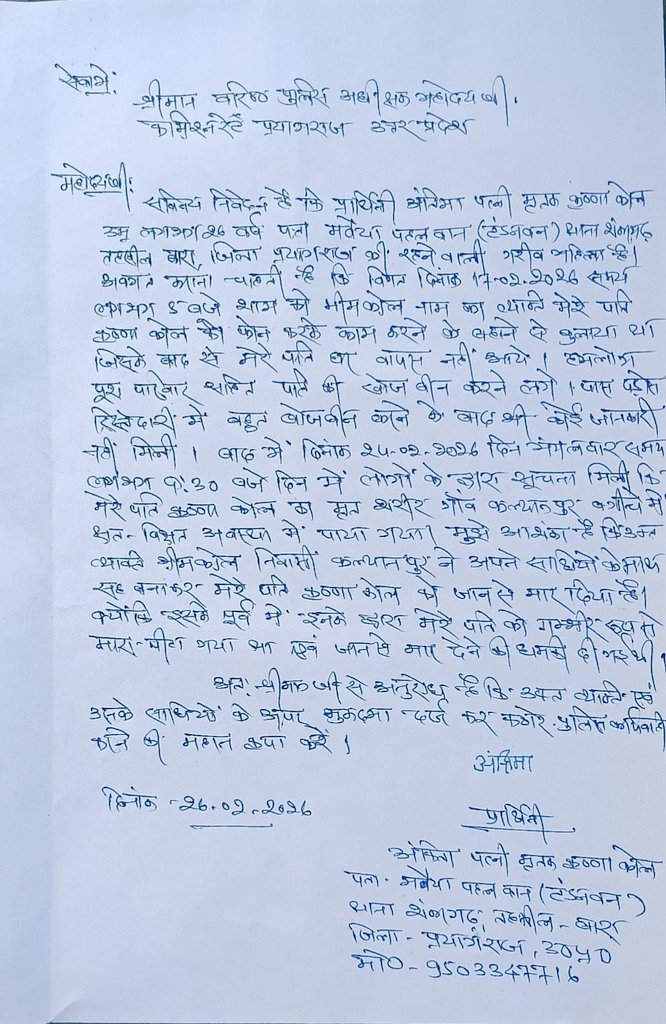 सेवामें:
श्रीमान वरिष्ठ पुलिस अधीक्षक महोदय जी,
कमिश्नरेट प्रयागराज उत्तर प्रदेश
महोदयजी:
सविनय निवेदन है कि प्रार्थिनी अंतिमा पत्नी मृतक कृष्णा कोल
उम्र लगभग 26 वर्ष पता मवैया पहलवान (टंडनवन) थाना शंकरगढ़
तहसील बारा, जिला प्रयागराज की रहने वाली गरीब महिला है।
अवगत कराना चाहती है कि विगत दिनांक 17-02-2026 समय
लगभग 5 बजे शाम को भीमकोल नाम का व्यक्ति मेरे पति
कृष्णा कोल को फोन करके काम करने के बहाने से बुलाया था
जिसके बाद से मेरे पति घर वापस नहीं आये। हमलोग
पूरा परिवार सहित पति की खोजबीन करने लगे। पास पड़ोस
रिश्तेदारी में बहुत खोजबीन करने के बाद भी कोई जानकारी
नहीं मिली। बाद में दिनांक 24-02-2026 दिन मंगलवार समय
लगभग :30 बजे दिन में लोगों के द्वारा सूचना मिली कि
मेरे पति कृष्णा कोल का मृत शरीर गाँव कल्यानपुर बगीचे में
क्षत-विक्षत अवस्था में पाया गया। मुझे आशंका है कि उक्त
व्यक्ति भीमकोल निवासी कल्यानपुर ने अपने साथियों के साथ
मेरे पति कृष्णा कोल को जान से मार दिया है।
क्योंकि इसके पूर्व में इनके द्वारा मेरे पति को गम्भीर रूप से
मारा-पीटा गया था एवं जान से मार देने की धमकी दी गई थी।
अतः श्रीमान जी से अनुरोध है कि उक्त व्यक्ति एवं
उसके साथियों के ऊपर मुकदमा दर्ज कर कठोर पुलिस कार्यवाही
करने की महान कृपा करें।
अंतिमा
दिनांक -26.02.2026
प्रार्थिनी
पत्नी मृतक कृष्णा कोल
पता- मवैया पहलवान (टंडनवन)
थाना शंकरगढ़, तहसील-बारा
जिला - प्रयागराज, उ0प्र0
मो0-9503347716